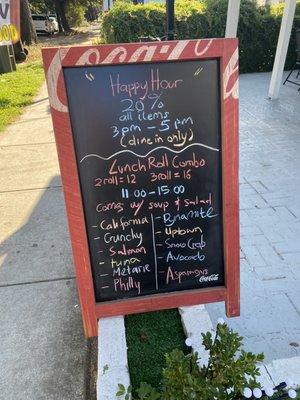 Coca-Cola
Happy Hour
20%
all items
3pm - 5pm
(dine in only)
Lunch Roll Combo
2 roll = 12 3 roll = 16
11:00 - 15:00
Comes w/ soup & salad
- California - Dynamite
- Crunchy - Uptown
- Salmon - Snow Crab
- tuna - Avocado
- Metarie
- Philly - Asparagus
Coca-Cola